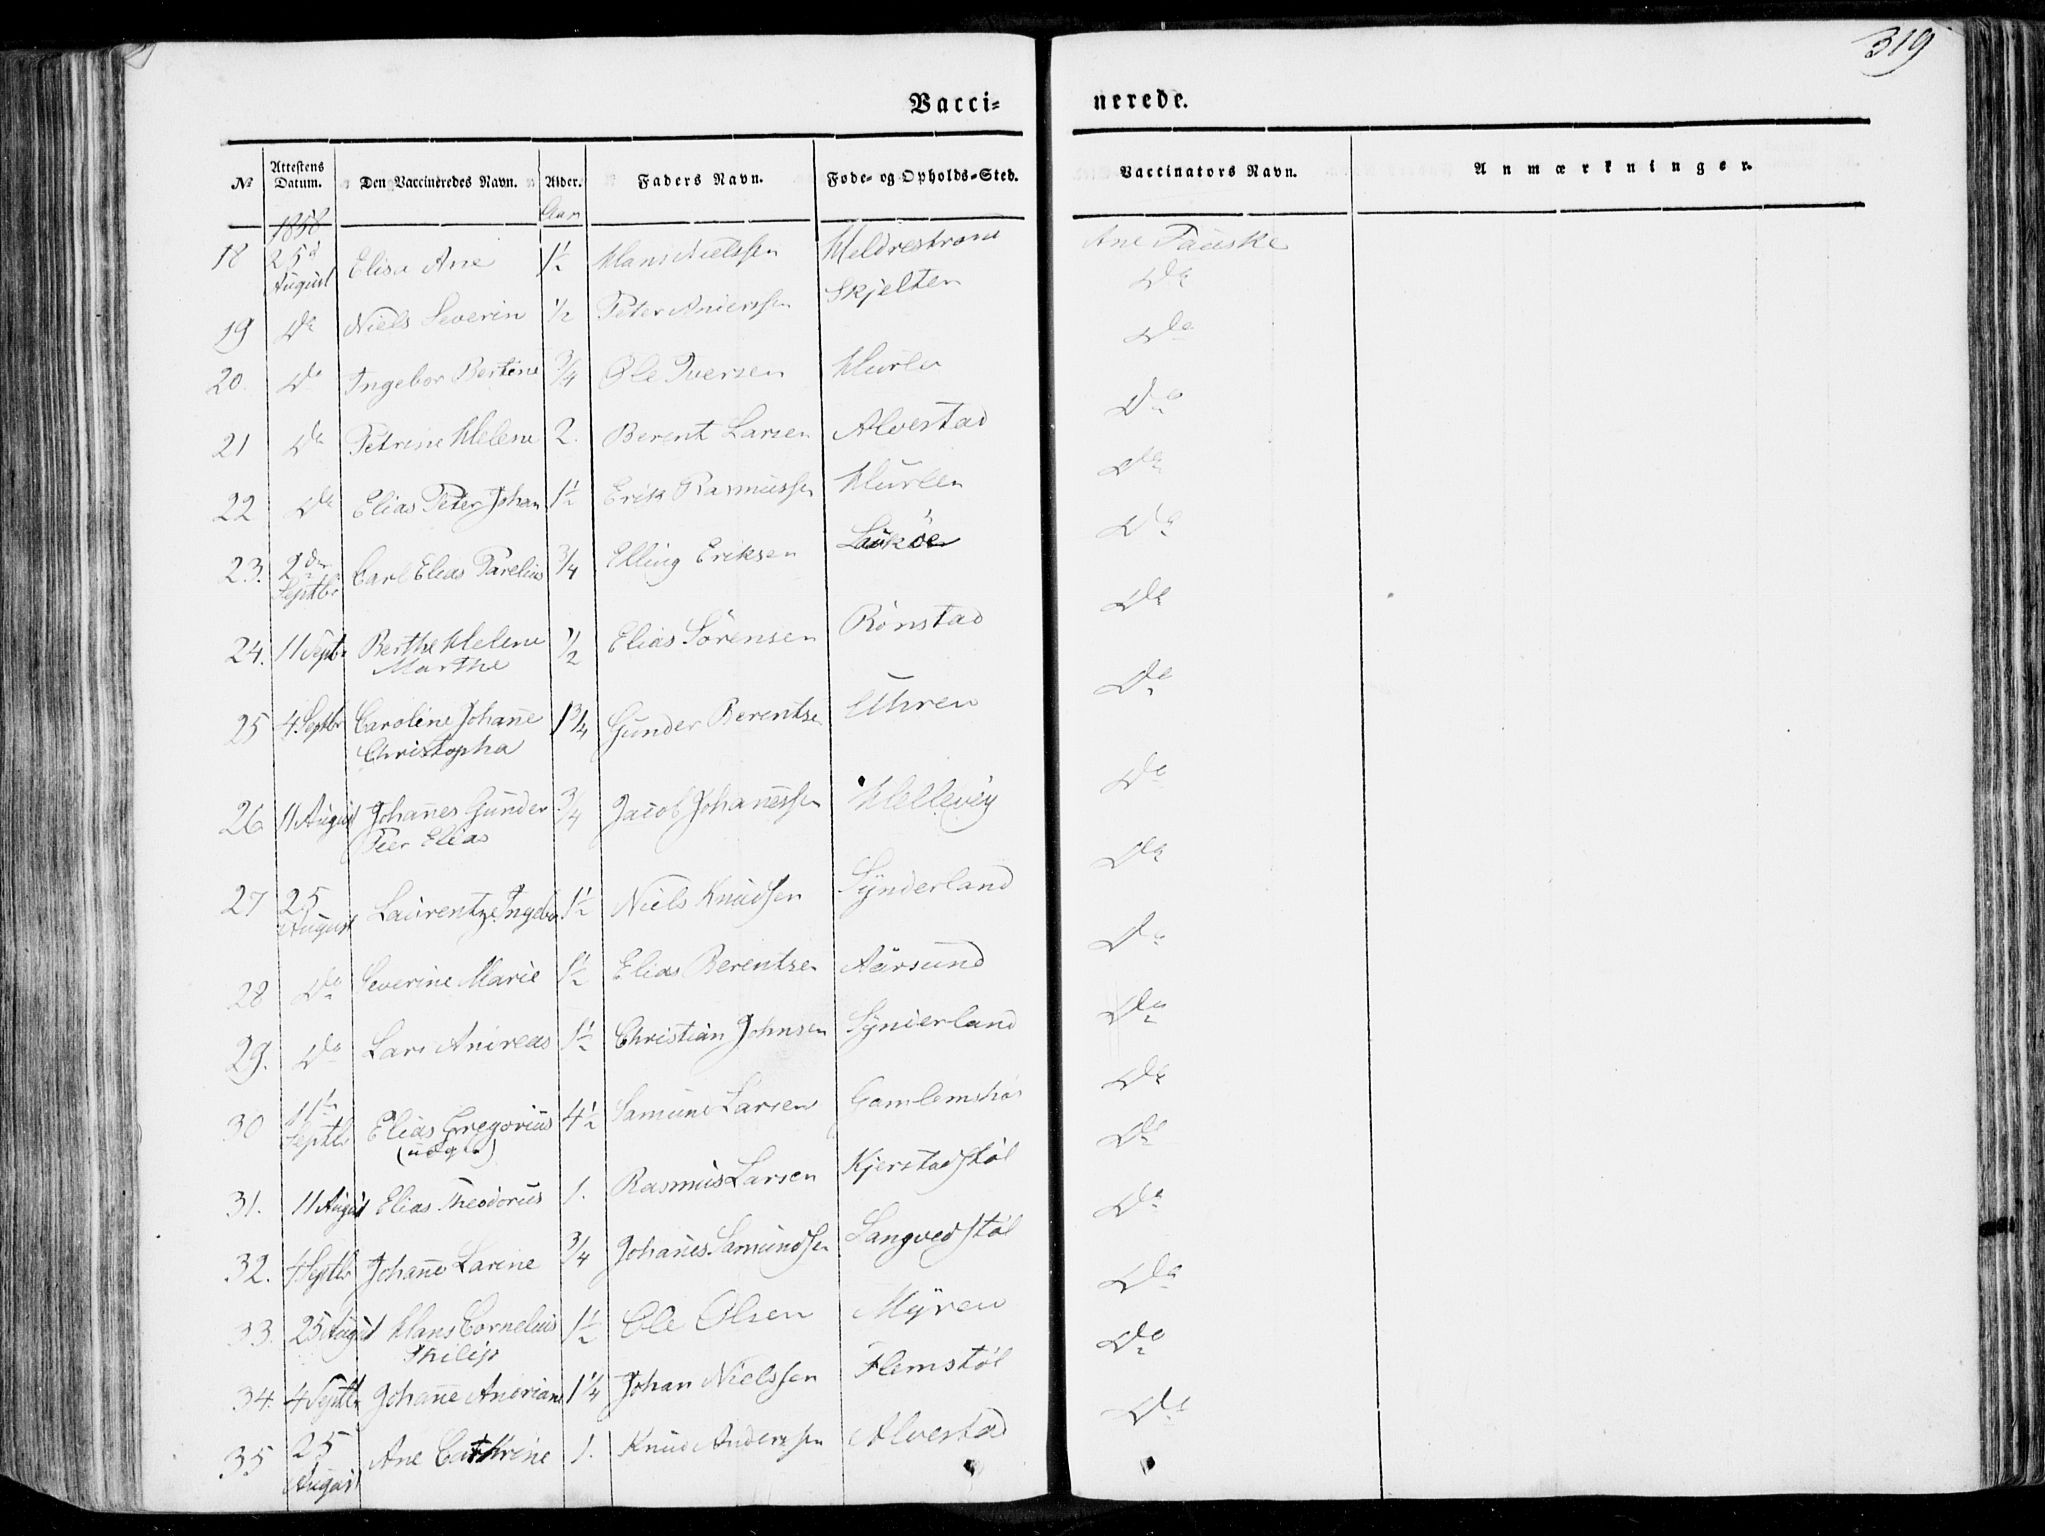 319
Vacci- nerede.
No Attestens Datum. Den Vaccineredes Navn. Alder. Faders Navn. Føde- og Opholds-Sted. Vaccinators Navn. Anmærkninger.
1858 Aar
18 25d August Elisa Ane 1½ Hans Nielssen Ane Tauske
19 Do Niels Severin ½ Peter Anderssen Skjelten Do
20. Do Ingebor Bertine ¾ Ole Iversen Hurlen Do
21 Do Petrine Helene 2. Berent Larsen Alvestad Do
22 Do Elias Peter Johan 1½ Erik Rasmussen Hurlen Do
23. 2den Septbr Carl Elias Parelius ¾ Elling Eriksen Laukøen Do
24. 11 Septbr Berthe Helene ½ Elias Sørensen Rønstad Do
Marthe
25 4 Septbr Caroline Johane 1¾ Gunder Berentsen Uhren Do
Christopha
26 11 August Johanes Gunder ¾ Jacob Johanessen Hellevig Do
Peer Elias
27 25 August Laurentze Ingebor 1½ Niels Knudsen Synderland Do
28 Do Severine Marie 1½ Elias Berentsen Aarsund Do
29. Do Lars Andreas 1½ Christian Johnsen Synderland Do
30 11te Septbr Elias Gregorius 4½ Samund Larsen Gamlems Do
31. 11 August Elias Theodorus 1. Rasmus Larsen Kjerstadstøl Do
32. 4 Septbr Johane Larine ¾ Johanes Samundsen Langvedstøl Do
33. 25 August Hans Cornelius 1½ Ole Olsen Myren Do
Philip
34. 4 Septbr Johane Andriane 1¼ Johan Nielssen Flemstøl Do
35 25 August Ane Cathrine 1. Knud Anderssen Alvestad Do